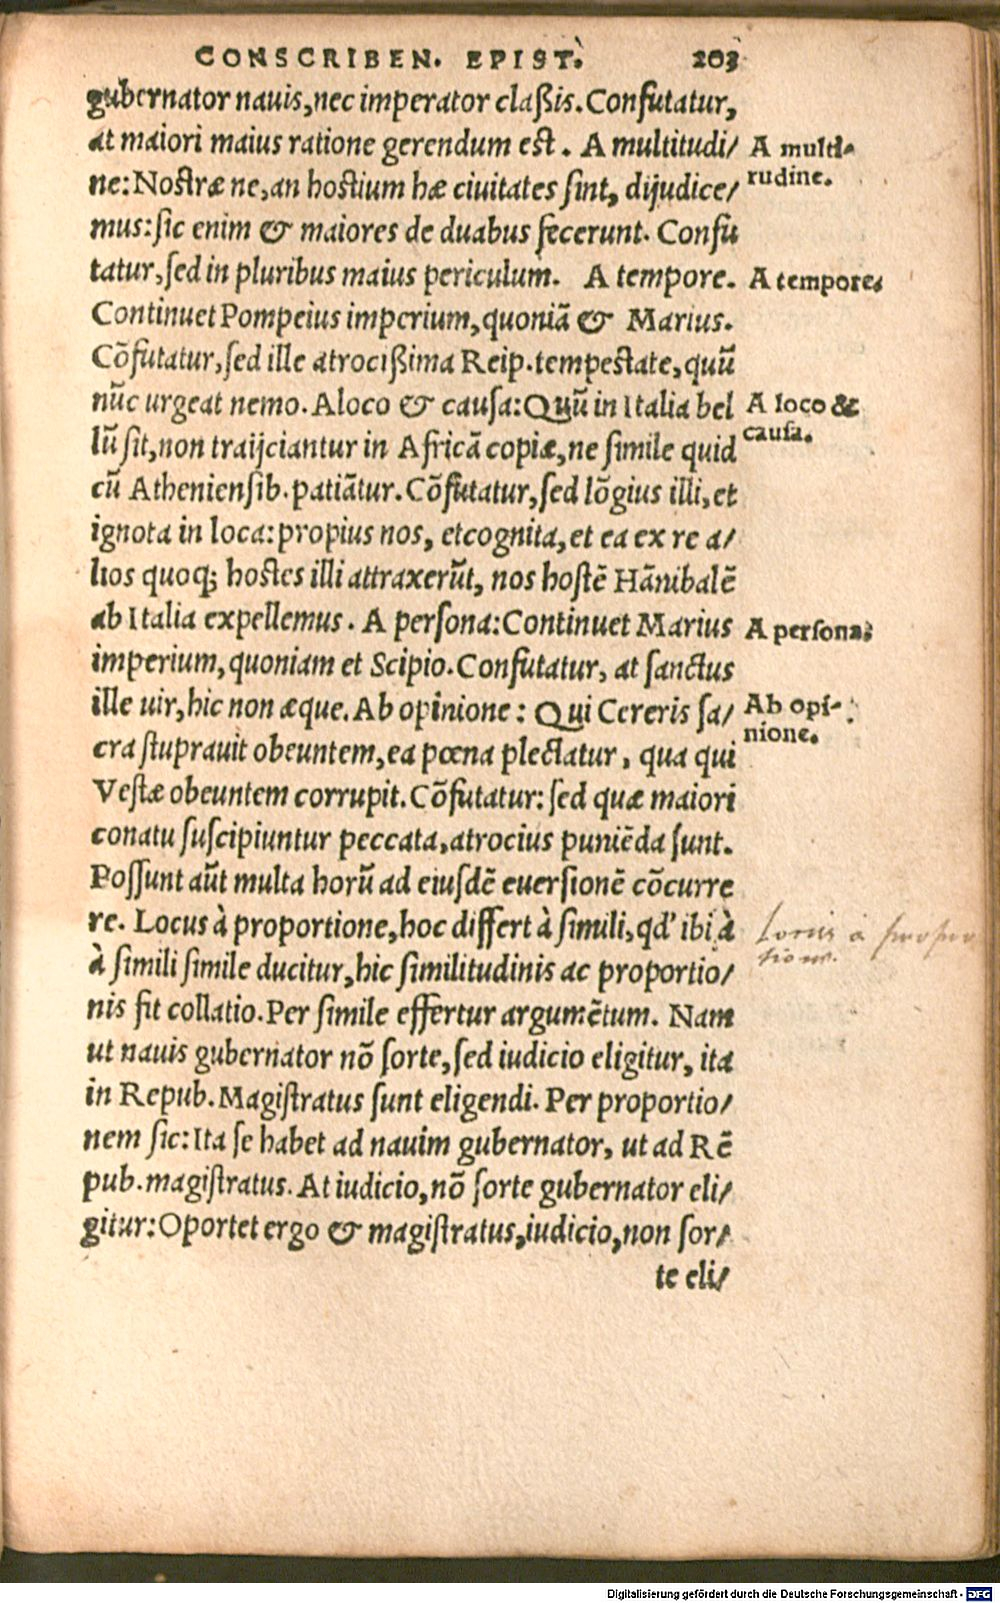 CONSCRIBEN. EPIST. 203
gubernator nauis, nec imperator claßis. Confutatur,
at maiori maius ratione gerendum est. A multitudi/
A multi-
tudine.
ne: Nostræ ne, an hostium hæ ciuitates sint, dijudice/
mus: sic enim & maiores de duabus fecerunt. Confu
tatur, sed in pluribus maius periculum. A tempore.
A tempore.
Continuet Pompeius imperium, quoniã & Marius.
Cõfutatur, sed ille atrocißima Reip. tempestate, quũ
nũc urgeat nemo. A loco & causa: Quũ in Italia bel
A loco &
causa.
lũ sit, non traijciantur in Africã copiæ, ne simile quid
cũ Atheniensib. patiãtur. Cõfutatur, sed lõgius illi, et
ignota in loca: propius nos, et cognita, et ea ex re a/
lios quoq; hostes illi attraxerũt, nos hostẽ Hãnibalẽ
ab Italia expellemus. A persona: Continuet Marius
A persona.
imperium, quoniam et Scipio. Confutatur, at sanctus
ille uir, hic non æque. Ab opinione: Qui Cereris sa/
Ab opi-
nione.
cra stuprauit obeuntem, ea pœna plectatur, qua qui
Vestæ obeuntem corrupit. Cõfutatur: sed quæ maiori
conatu suscipiuntur peccata, atrocius puniẽda sunt.
Possunt aũt multa horũ ad eiusdẽ euersionẽ cõcurre
re. Locus à proportione, hoc differt à simili, qd' ibi à
Locus a propor
tione.
à simili simile ducitur, hic similitudinis ac proportio/
nis fit collatio. Per simile effertur argumẽtum. Nam
ut nauis gubernator nõ sorte, sed iudicio eligitur, ita
in Repub. Magistratus sunt eligendi. Per proportio/
nem sic: Ita se habet ad nauim gubernator, ut ad Rẽ
pub. magistratus. At iudicio, nõ sorte gubernator eli/
gitur: Oportet ergo & magistratus, iudicio, non sor/
te eli/
Digitalisierung gefördert durch die Deutsche Forschungsgemeinschaft - DFG